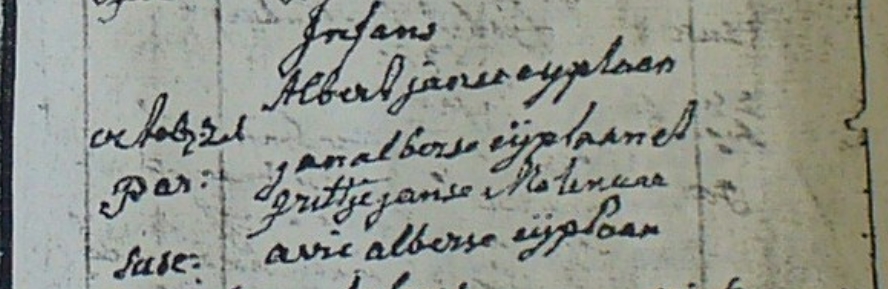 Infans
Albert janse eyplaan
octob, 21
Par: jan alberse eyplaan et
grittje janse Molenaar
Susc: avie alberse eyplaan